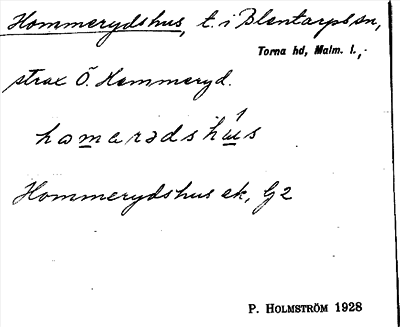 Hommerydshus, t. i Blentarps sn,
Torna hd, Malm. l.,
strax Ö. Hommeryd.
hamarədshús
Hommerydshus ek, G2
P. HOLMSTRÖM 1928